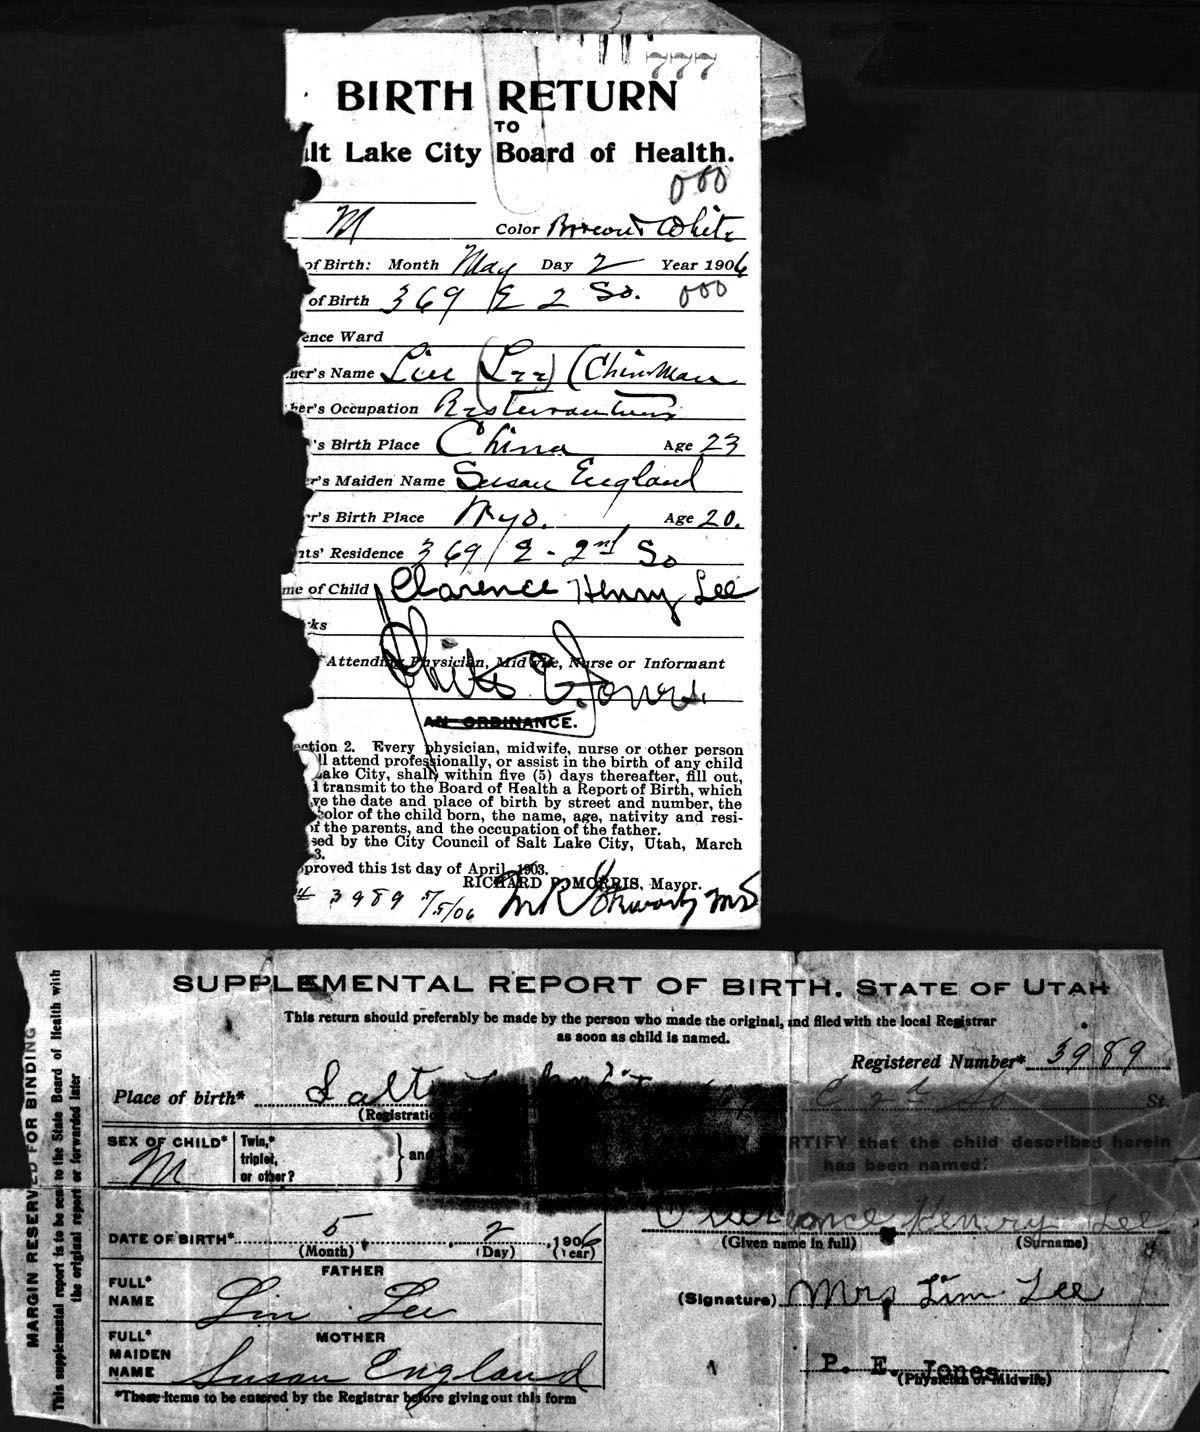 777
BIRTH RETURN
TO
lt Lake City Board of Health.
000
M Color Brown White
of Birth: Month May Day 2 Year 1906
of Birth 369 E 2 So. 000
ence Ward
her's Name Lin (Lee) (Chinaman
her's Occupation
's Birth Place China Age 23
r's Maiden Name Susan England
r's Birth Place Wyo. Age 20.
nts' Residence 369 E - 2nd So
me of Child Clarence Henry Lee
ks
Attending Physician, Midwife, Nurse or Informant
Philo E. Jones.
AN ORDINANCE.
ection 2. Every physician, midwife, nurse or other person
ll attend professionally, or assist in the birth of any child
Lake City, shall within five (5) days thereafter, fill out,
d transmit to the Board of Health a Report of Birth, which
ve the date and place of birth by street and number, the
color of the child born, the name, age, nativity and resi-
of the parents, and the occupation of the father.
sed by the City Council of Salt Lake City, Utah, March
3.
proved this 1st day of April, 1903.
RICHARD P. MORRIS, Mayor.
3989 5/5/06
SUPPLEMENTAL REPORT OF BIRTH. STATE OF UTAH
This return should preferably be made by the person who made the original, and filed with the local Registrar
as soon as child is named.
Registered Number* 3989
Place of birth* Salt E 2d So St.
(Registratio
SEX OF CHILD* M Twin,* triplet, or other? } and
RTIFY that the child described herein
has been named:
Clarence Henry Lee
(Given name in full) (Surname)
DATE OF BIRTH* 5 2 1906
(Month) (Day) (Year)
FATHER
FULL* NAME Lin Lee
(Signature) Mrs Lim Lee
MOTHER
FULL* MAIDEN NAME Susan England
P. E. Jones
(Physician or Midwife)
*These items to be entered by the Registrar before giving out this form
MARGIN RESERVED FOR BINDING
This supplemental report is to be sent to the State Board of Health with
the original report or forwarded later